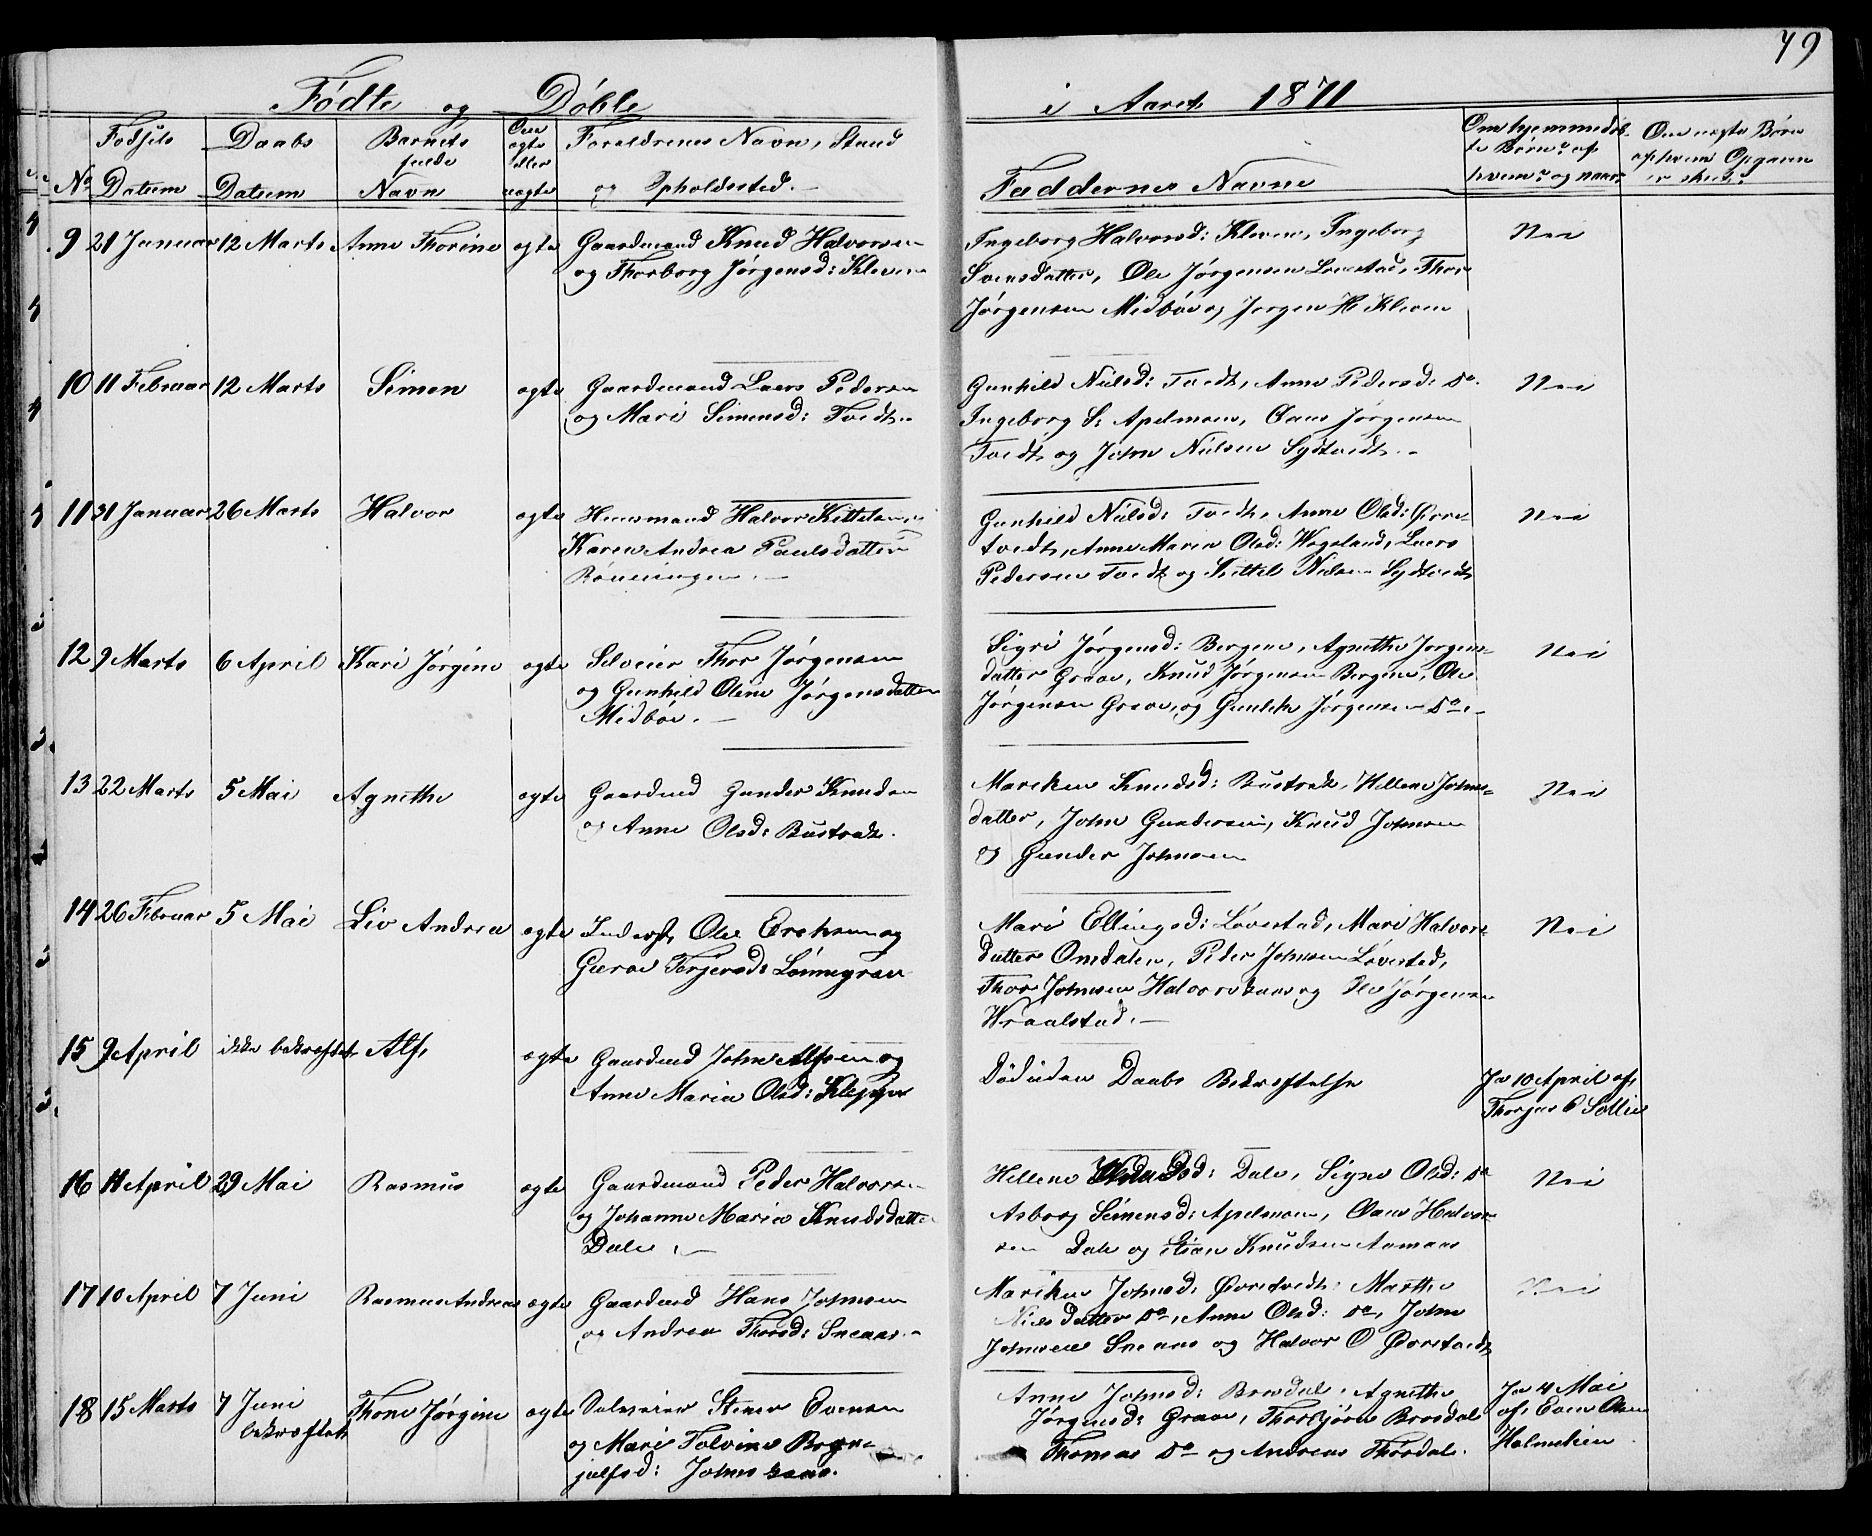 79
Fødte og Døbte i Aaret 1871
No Fødsels Datum
Daabs Datum
Barnets fulde Navn
Om ægte eller uægte
Forældrenes Navn, Stand og Opholdssted.
Faddernes Navne
Om hjemmedøbte Børn: af hvem og naar
9 21 Januar 12 Marts Anne Thorine ægte Gaardmand Knud Halvorsen
og Thorborg Jørgensd: Kleven
Ingeborg Halvorsd: Kleven, Ingeborg
Svensdatter, Ole Jørgensen Lovestad, Thor
Jørgensen Midbøe og Jørgen H Kleven
Nei
10 11 Februar 12 Marts Simen ægte Gaardmand Lars Pedersen
og Mari Simensd: Tvedt.
Gunhild Nielsd: Tvedt, Anne Pedersd: Do.
Ingeborg S: Apelmoen, Claus Jørgensen
Tvedt og John Nielsen Sydtvedt.
Nei
11 31 Januar 26 Marts Halvor ægte Huusmand Halvor Kittelsen
Karen Andrea Paulsdatter
Rønningen.
Gunhild Nielsd: Tvedt, Anne Olsd: Øvre-
tvedt, Anne Maren Olsd: Wegeland, Lars
Pedersen Tvedt og Kittel Nielsen Sydtvedt
Nei
12 9 Marts 6 April Kari Jørgine ægte Selveier Thor Jørgensen
og Gunhild Oline Jørgensdatter
Midbøe.
Sigri Jørgensd: Bergene, Agnethe Jørgens-
datter Graae, Knud Jørgensen Bergene, Ole
Jørgensen Graae og Gunlek Jørgensen Do.
Nei
13 22 Marts 5 Mai Agnethe ægte Gaardmd Gunder Knudsen
og Anne Olsd: Bustrak.
Mariken Knudsd: Bustrak, Hellene Johns-
datter, John Gundersen, Knud Johnsen
og Gunder Johnsen
Nei
14 26 Februar 5 Mai Liv Andrea ægte Inderst Ole Ereksen og
Guroe Terjersd: Lønnegrav
Mari Ellingsd: Løvestad, Mari Halvors-
datter Omdalen, Peder Johnsen Løvestad,
Thor Johnsen Halvorskaas og Ole Jørgensen
Wraalstad.
Nei
15 9 April ikke bekræftet Alf, ægte Gaardmd John Alfsen og
Anne Maria Olsd: Kleppe
Død uden Daabs Bekræftelse
Ja 10 April af,
Thorjus O Sollie
16 11 April 29 Mai Rasmus ægte Gaardmand Peder Halvorsen
og Johanne Maria Knudsdatter
Dale.
Hellene Dale, Signe Olsd: Do
Asborg Simensd: Apelmoen, Claus Halvor-
sen Dale og Stian Knudsen Aamaas
Nei
17 10 April 7 Juni Rasmus Andreas ægte Gaardmd Hans Johnsen
og Andrea Thorsd: Sneaas.
Mariken Johnsd: Øvretvedt, Marthe
Nielsdatter Do, Anne Olsd: Do, John
Johnsen Sneaas og Halvor O Øvretvedt
Nei
18 15 Marts 7 Juni bekræftet Thone Jørgine ægte Selveier Stener Evensen
og Mari Tolvine Bryn-
julfsd: Johnskaas.
Anne Johnsd: Brosdal, Agnethe
Jørgensd: Graae, Thorbjørn Brosdal
Thomas Do og Andreas Thorsdal.
Ja 4 Mai
af, Even Olsen
Holmekien